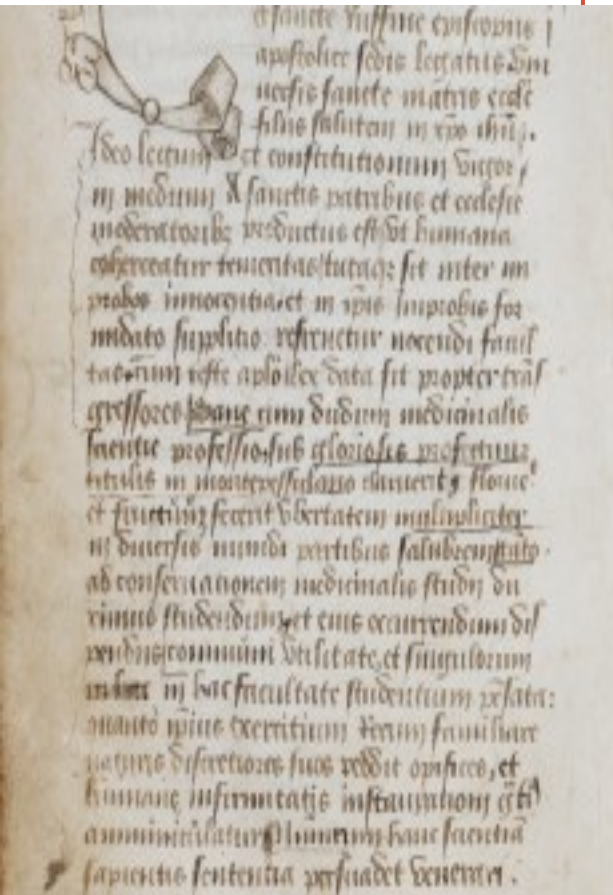 et sancte Ruffine episcopus
apostolice sedis legatus Uni
uersis sancte matris eccle
filiis salutem in xpo ihu.
Ideo lectum et constitutionum vigor
in medium A sanctis patribus et ecclesie
moderatoribz productus est vt humana
coherceatur temeritas tutaqz sit inter im
probos innocentia et in ipis improbis for
midato supplitio refrenetur nocendi facul
tas cum teste aplo lex data sit propter trans
gressores Sane cum dudum medicinalis
scientie professio sub gloriosis profectuum
titulis in montepessulano claruerit floruerit
et fructuum fecerit vbertatem multipliciter
in diuersis mundi partibus salubrem
ad conseruationem medicinalis studii du
ximus studendum et eius occurrendum dis
pendiis communi vtilitate et singulorum
in hac facultate studentium
quanto ipius exercitium rerum familiare
naturis discretiores suos reddit opifices, et
humane infirmitatis instaurationi
amminiculatur hanc scientia
sapientis sententia persuadet venerari.